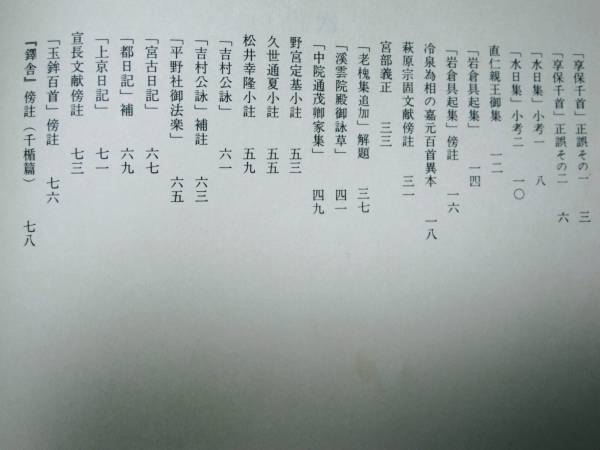 「享保千首」正誤その一 三
「享保千首」正誤その二 六
「水日集」小考一 八
「水日集」小考二 一〇
直仁親王御集 一二
「岩倉具起集」 一四
「岩倉具起集」傍註 一六
冷泉為相の嘉元百首異本 一八
萩原宗固文献傍註 三一
宮部義正 三三
「老槐集追加」解題 三七
「溪雲院殿御詠草」 四一
「中院通茂卿家集」 四九
野宮定基小註 五三
久世通夏小註 五五
松井幸隆小註 五九
「吉村公詠」 六一
「吉村公詠」補註 六三
「平野社御法楽」 六五
「宮古日記」 六七
「都日記」補 六九
「上京日記」 七一
宣長文献傍註 七三
「玉鉾百首」傍註 七六
『鐸舎』傍註（千楯篇） 七八